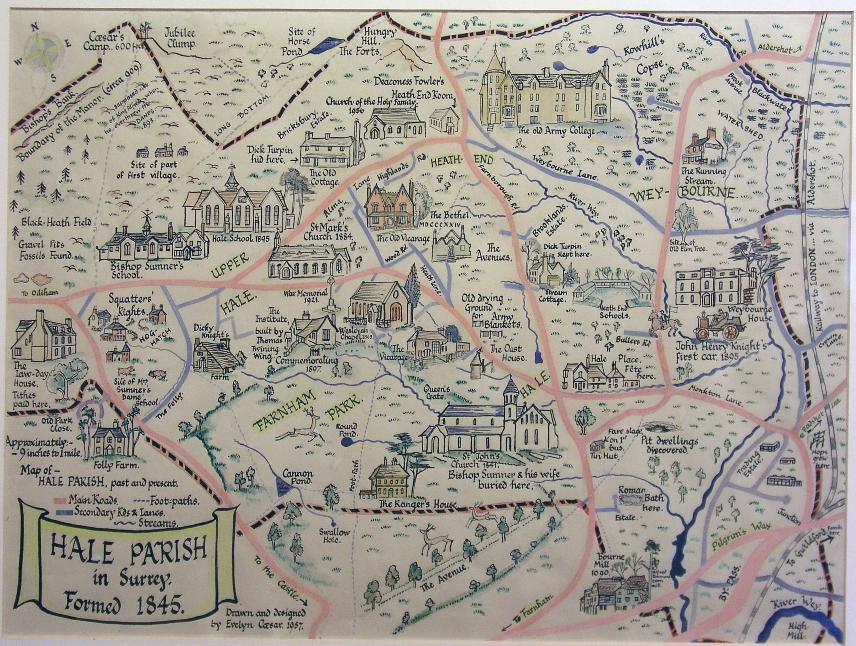 N
E
S
W
Cæsar's
Camp. 600 feet
Jubilee
Clump.
Site of
Horse
Pond.
Hungry
Hill.
The Forts.
Rowhill's
Copse.
Aldershot
Bishop's Bank
Boundary of the Manor. (circa 909)
LONG BOTTOM
Deaconess Fowler's
Heath End Room.
Church of the Holy Family.
1956
Bricksbury
Dick Turpin
hid here.
The Old
Cottage.
The old Army College.
Brook
Blackwater
WATER SHED
The Running
Stream
Site of part
of first village.
Weybourne Lane.
HEATH-END
Farnborough Rd
Highlands Rd
Alma Lane
River Wey.
WEY-BOURNE
Black-Heath Field
Gravel Pits
Fossils Found.
To Odiham
Hale School 1845
Bishop Sumner's
School.
St Mark's
Church 1884.
The Old Vicarage
The Bethel
MDCCCXXIV
The
Avenues.
Brooklands
Estate.
Dick Turpin
Kept here.
Stream
Cottage.
Heath End
Schools.
Site of
Old Elm Tree.
Weybourne
House
Railway to LONDON ... via Aldershot.
UPPER
HALE.
War Memorial
1921.
Squatters'
Rights.
HOG HATCH
The
Institute,
built by
Thomas
Twining
Wing
Commemorating
1897.
Wesleyan
Chapel
Heath Lane
Old drying
Ground
for Army
Blankets.
The Oast
House.
Bullers Rd
John Henry Knight's
first car. 1895.
The
Law-day
House.
Tithes
paid here.
Site of Mrs
Sumner's
Dame
School.
Dicky
Knight's
Farm
The
Vicarage
Hale Place.
Fête
here.
Monkton Lane.
The Folly
Queen's
Gate.
HALE
FARNHAM
PARK
Old Park
Close.
Round
Pond.
St John's
Church 1841.
Bishop Sumner & his wife
buried here.
Fare stage
on 1st
Bus.
Tin Hut.
Pit Dwellings
discovered.
Hops
grew
here.
Trading
Estate.
Approximately:-
9 inches to 1 mile.
Folly Farm.
Map of —
HALE PARISH, past and present.
Main Roads.
Foot-paths.
Secondary Rds & Lanes.
Streams.
Cannon
Pond.
Foot-path
The Ranger's House
Roman
Bath
here.
Estate.
Junction
Pilgrim's Way
To Guildford
Swallow
Hole.
The Avenue
Bourne
Mill
BY-PASS.
HALE PARISH
in Surrey.
Formed 1845.
To the Castle.
To Farnham
River Wey.
High
Mill.
Drawn and designed
by Evelyn Cæsar. 1957.